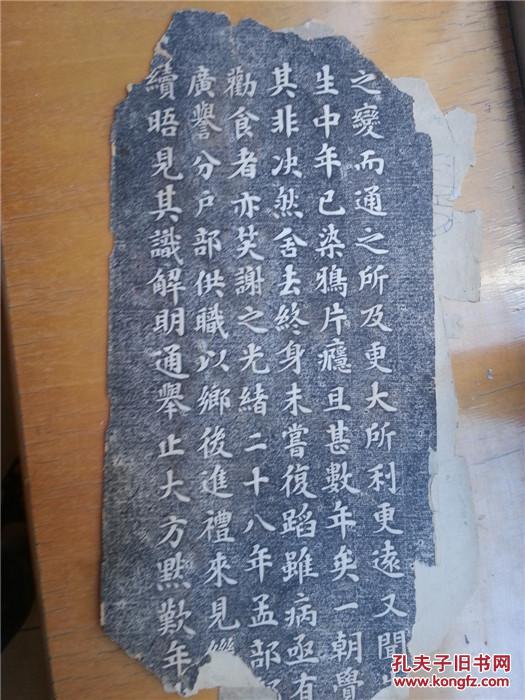 之變而通之所及更大所利更遠又聞
生中年已染鴉片癮且甚數年矣一朝覺
其非决然舍去終身未嘗復蹈雖病亟有
勸食者亦笑謝之光緒二十八年孟部
廣譽分戶部供職以鄉後進禮來見
續晤見其識解明通舉止大方黙歎年
孔夫子旧书网
www.kongfz.com